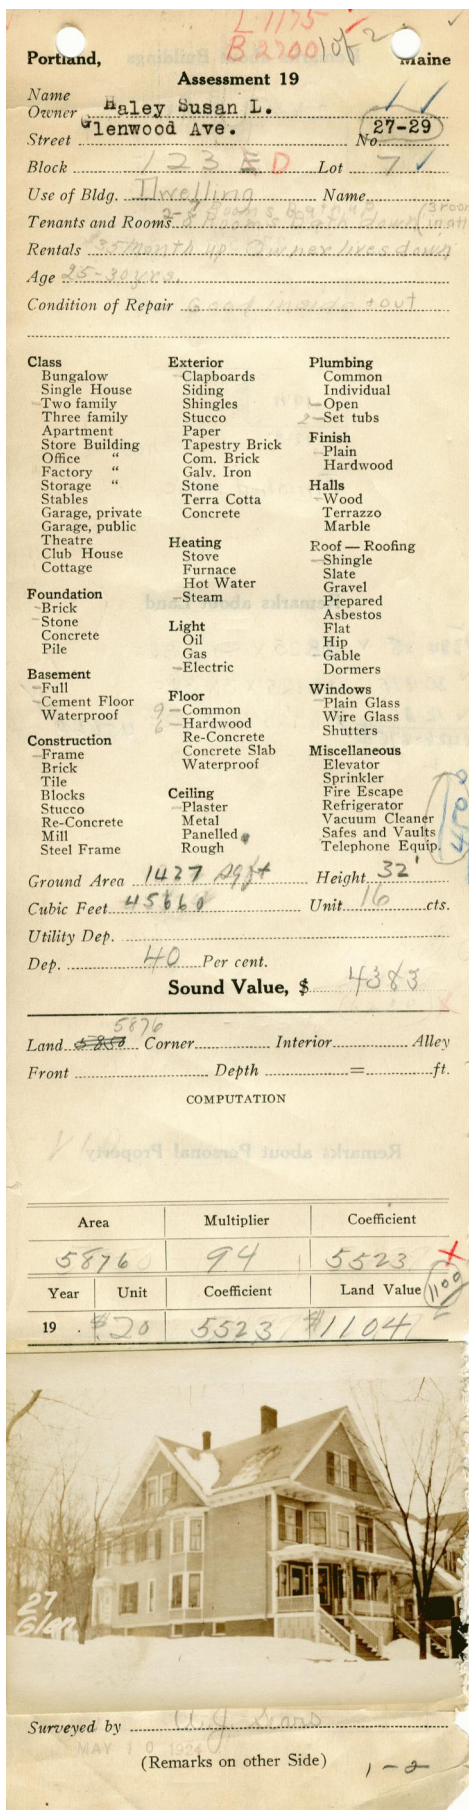 L 1175
B 2700 1 of 2
Portland, Maine
Assessment 19
Name
Owner Haley Susan L.
Street Glenwood Ave. No. 27-29
Block 123 D Lot 7
Use of Bldg. Dwelling Name
Tenants and Rooms
Rentals $35 Month up Owner lives down
Age 25-30 yrs.
Condition of Repair Good inside + out
Class
Bungalow
Single House
Two family
Three family
Apartment
Store Building
Office "
Factory "
Storage "
Stables
Garage, private
Garage, public
Theatre
Club House
Cottage
Foundation
Brick
Stone
Concrete
Pile
Basement
Full
Cement Floor
Waterproof
Construction
Frame
Brick
Tile
Blocks
Stucco
Re-Concrete
Mill
Steel Frame
Exterior
Clapboards
Siding
Shingles
Stucco
Paper
Tapestry Brick
Com. Brick
Galv. Iron
Stone
Terra Cotta
Concrete
Heating
Stove
Furnace
Hot Water
Steam
Light
Oil
Gas
Electric
Floor
9 Common
6 Hardwood
Re-Concrete
Concrete Slab
Waterproof
Ceiling
Plaster
Metal
Panelled
Rough
Plumbing
Common
Individual
Open
2 Set tubs
Finish
Plain
Hardwood
Halls
Wood
Terrazzo
Marble
Roof — Roofing
Shingle
Slate
Gravel
Prepared
Asbestos
Flat
Hip
Gable
Dormers
Windows
Plain Glass
Wire Glass
Shutters
Miscellaneous
Elevator
Sprinkler
Fire Escape
Refrigerator
Vacuum Cleaner
Safes and Vaults
Telephone Equip.
Ground Area 1427 sqft Height 32'
Cubic Feet 45660 Unit 16 cts.
Utility Dep.
Dep. 40 Per cent.
Sound Value, $ 4383
5876
Land 5850 Corner Interior Alley
Front Depth = ft.
COMPUTATION
Area Multiplier Coefficient
5876 94 5523
Year Unit Coefficient Land Value 1100
19 . $.20 5523 $1104
27
Glen
Surveyed by
MAY 10 1924
(Remarks on other Side)
1-2